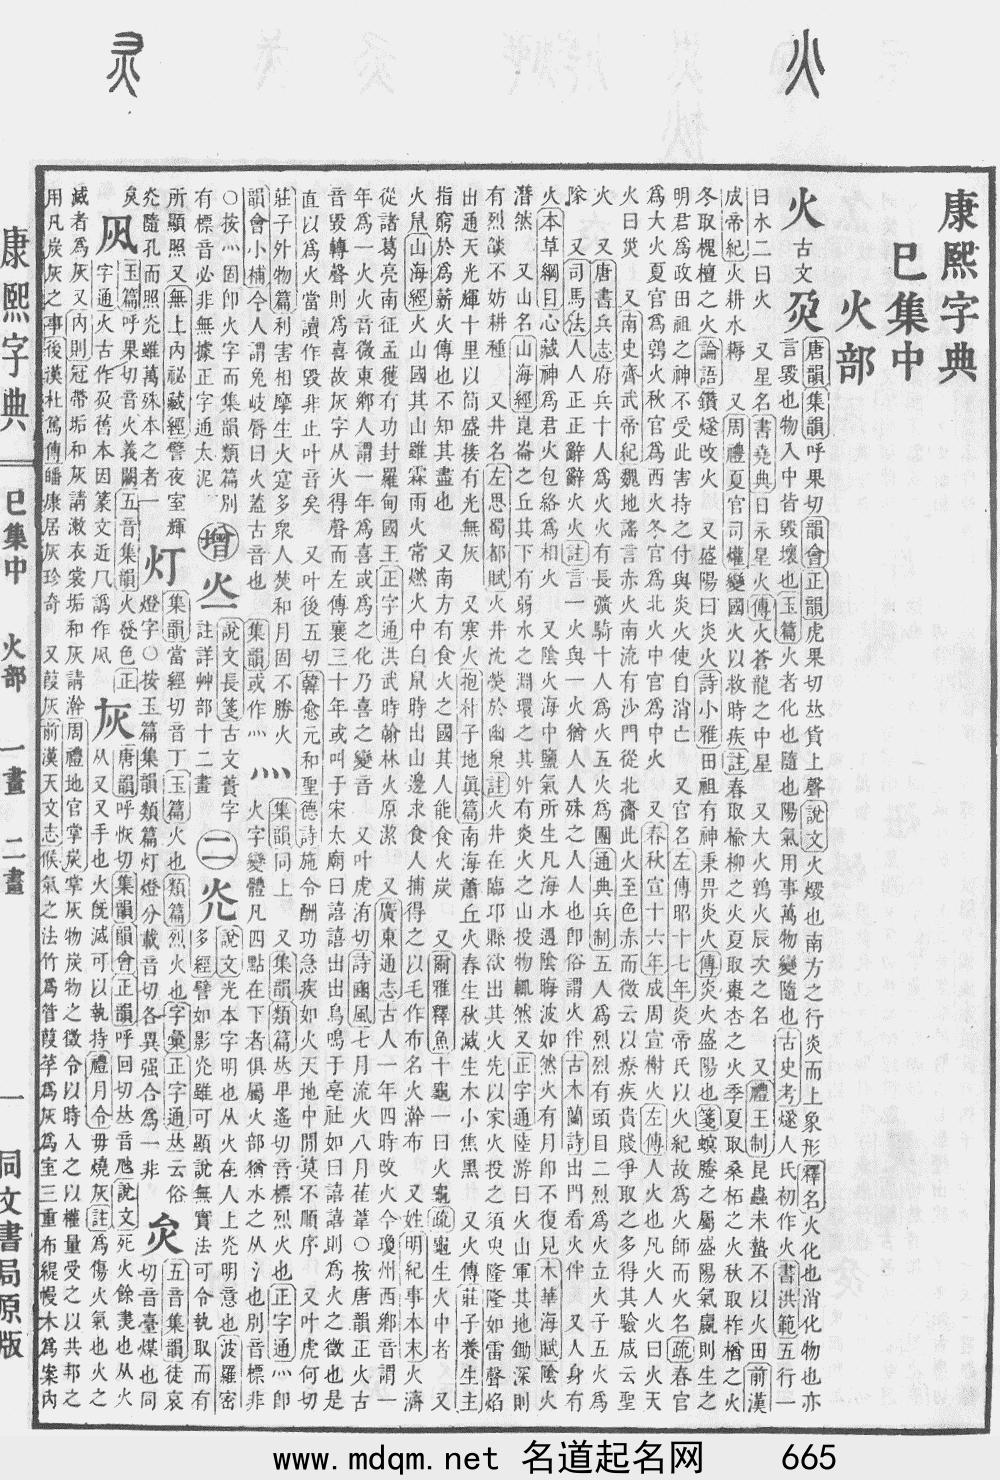 康熙字典
巳集中
火部
火 古文 𤆄
唐韻集韻呼果切韻會正韻虎果切𠀤貨上聲說文火燬也南方之行炎而上象形釋名火化也消化物也亦
言毀也物入中皆毀壞也玉篇火者化也隨也陽氣用事萬物變隨也古史考燧人氏初作火書洪範五行一
曰水二曰火 又星名書堯典日永星火傳火蒼龍之中星 又大火鶉火辰次之名 又禮王制昆蟲未蟄不以火田前漢
成帝紀火耕水耨 又周禮夏官司爟變國火以救時疾註春取榆柳之火夏取棗杏之火季夏取桑柘之火秋取柞楢之火
冬取槐檀之火論語鑽燧改火 又盛陽曰炎火詩小雅田祖有神秉畀炎火傳炎火盛陽也箋螟螣之屬盛陽氣嬴則生之
明君為政田祖之神不受此害持之付與炎火使自消亡 又官名左傳昭十七年炎帝氏以火紀故為火師而火名疏春官
為大火夏官為鶉火秋官為西火冬官為北火中官為中火 又春秋宣十六年成周宣榭火左傳人火也凡火人火曰火天
火曰災 又南史齊武帝紀魏地謠言赤火南流有沙門從北齎此火至色赤而微云以療疾貴賤爭取之多得其驗咸云聖
火 又唐書兵志府兵十人為火火有長彍騎十人為火五火為團通典兵制五人為烈烈有頭目二烈為火立火子五火為
隊 又司馬法人人正正辭辭火火註言一火與一火猶人人殊之人人人也卽俗謂火伴古木蘭詩出門看火伴 又人身有
火本草綱目心藏神為君火包絡為相火 又陰火海中鹽氣所生凡海水遇陰晦波如然火有月卽不復見木華海賦陰火
潛然 又山名山海經崑崙之丘其下有弱水之淵環之其外有炎火之山投物輒然又正字通陸游曰火山軍其地鋤深則
有烈燄不妨耕種 又井名左思蜀都賦火井沈熒於幽泉註火井在臨邛縣欲出其火先以家火投之須臾隆隆如雷聲焰
出通天光輝十里以筒盛接有光無灰 又寒火抱朴子地眞篇南海蕭丘火春生秋滅生木小焦黑 又火傳莊子養生主
指窮於為薪火傳也不知其盡也 又南方有食火之國其人能食火炭 又爾雅釋魚十龜一曰火龜疏龜生火中者 又
火鼠山海經火山國其山雖霖雨火常燃火中白鼠時出山邊求食人捕得之以毛作布名火澣布 又姓明紀事本末火濟
從諸葛亮南征孟獲有功封羅甸國王正字通洪武時翰林火原潔 又廣東通志古人一年四時改火今瓊州西鄉音謂一
年為一火火音微東鄉人謂一年為喜或為之化乃喜之變音 又叶虎洧切詩豳風七月流火八月萑葦○按唐韻正火古
音毀轉聲則為喜故灰字从火得聲而左傳襄三十年或叫于宋太廟曰譆譆出出鳥鳴于亳社如曰譆譆則為火之徵也是
直以為火當讀作毀非止叶音矣 又叶後五切韓愈元和聖德詩施令酬功急疾如火天地中閒莫不順序 又叶虎何切
莊子外物篇利害相摩生火寔多衆人焚和月固不勝火
韻會小補今人謂兔岐脣曰火蓋古音也 集韻或作灬
灬
集韻同上 又集韻類篇𠀤卑遙切音標烈火也正字通灬卽
火字變體凡四點在下者俱屬火部猶水之从氵也別音標非
○按灬固卽火字而集韻類篇別
有標音必非無據正字通太泥
增
一
說文長箋古文蕢字
註詳艸部十二畫
二
灮
說文光本字明也从火在人上灮明意也波羅密
多經譬如影灮雖可顯說無實法可令執取而有
所顯照又無上內祕藏經譬夜室輝
灮隨孔而照灮雖萬殊本之者一
灯
集韻當經切音丁玉篇火也類篇烈火也字彙正字通𠀤云俗
燈字○按玉篇集韻類篇灯燈分載音切各異强合為一非
炱
五音集韻徒哀
切音臺煤也同
炱
凨
玉篇呼果切音火義闕五音集韻火發色正
字通火古作𤆄舊本因篆文近几譌作凨
灰
唐韻呼恢切集韻韻會正韻呼回切𠀤音虺說文死火餘㶳也从火
从又又手也火旣滅可以執持禮月令毋燒灰註為傷火氣也火之
滅者為灰又內則冠帶垢和灰請漱衣裳垢和灰請澣周禮地官掌炭掌灰物炭物之徵令以時入之以權量受之以共邦之
用凡炭灰之事後漢杜篤傳皤康居灰珍奇 又葭灰前漢天文志候氣之法竹為管葭莩為灰為室三重布緹幔木為案內
康熙字典 巳集中 火部 一畫 二畫 一 同文書局原版
www.mdqm.net 名道起名网 665